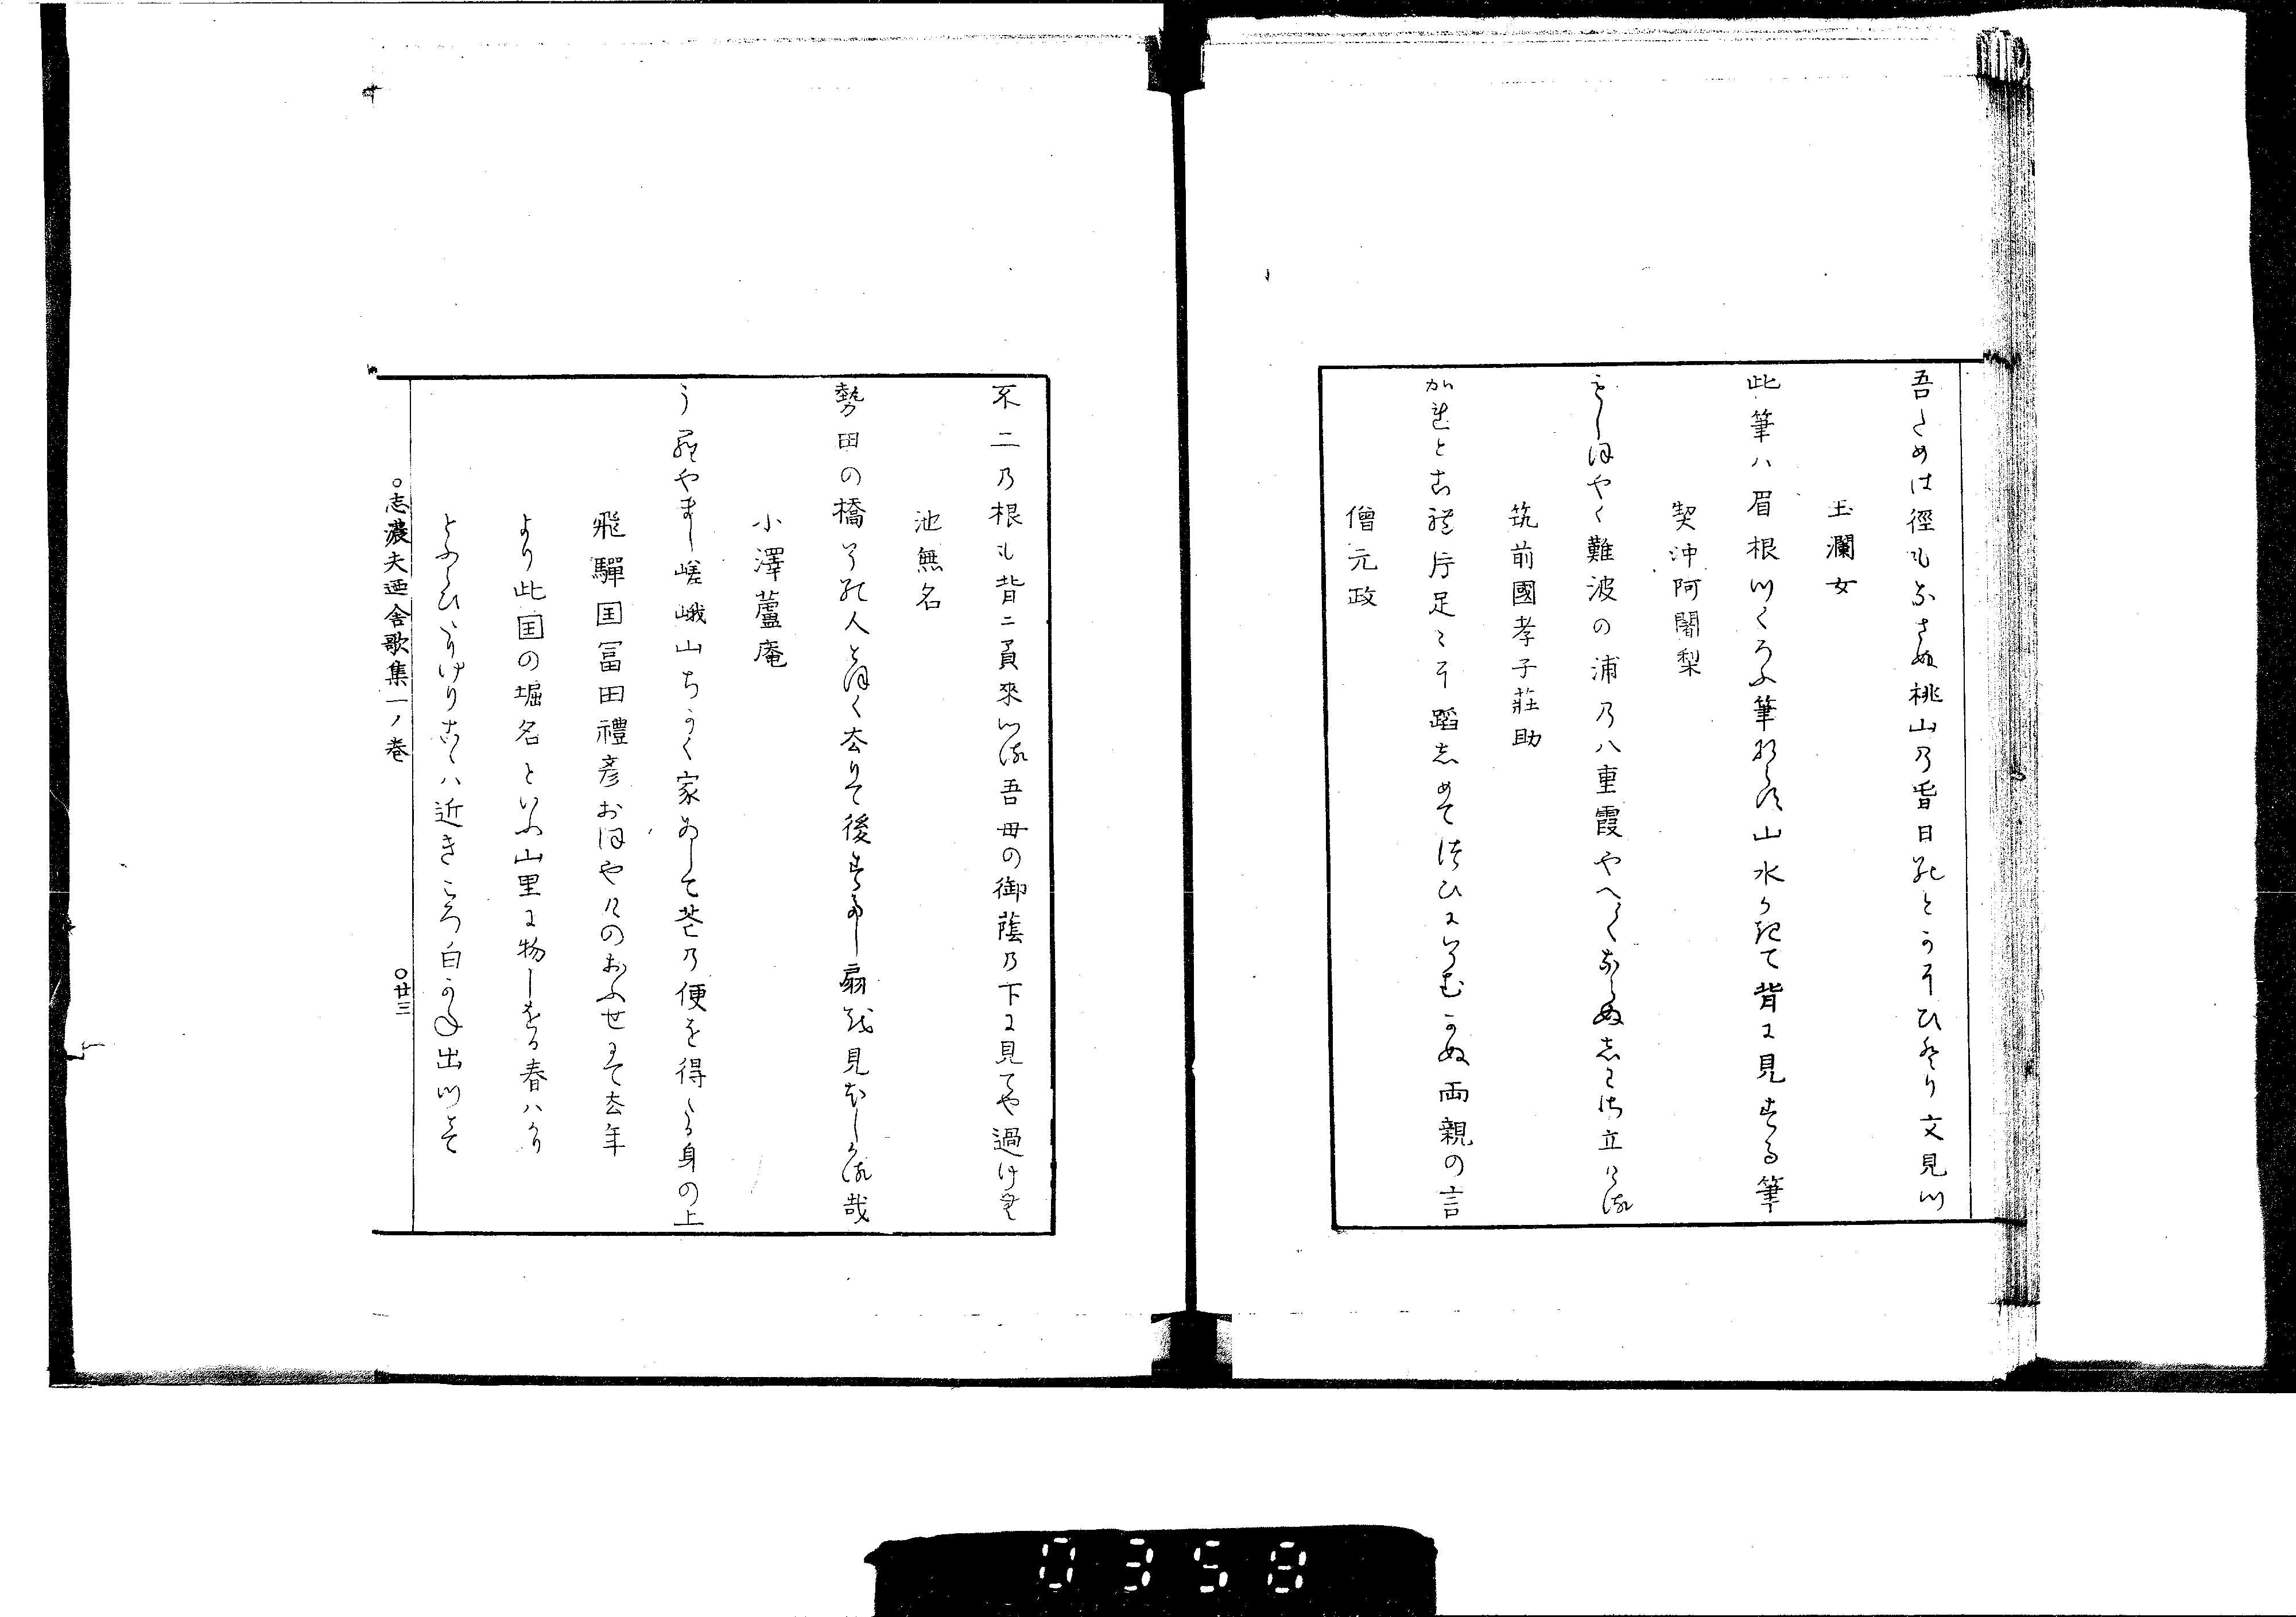 吾ためは徑もなさぬ桃山乃春日のとかにひとり文見つ
玉瀾女
此筆ハ眉根つくろふ筆ならす山水かきて背に見する筆
契沖阿闍梨
もしほやく難波の浦乃八重霞やへ〳〵ならぬしわさ立ける
筑前國孝子莊助
かれとこれ片足〻に蹈しめてつひにそむかぬ両親の言
僧元政
不二乃根も背ニ負來つる吾母の御蔭乃下に見てや過けむ
池無名
勢田の橋その人とほく去りて後すてし扇を見ほしかる哉
小澤蘆庵
うらやまし嵯峨山ちかく家ゐして花乃便を得たる身の上
飛驒国冨田禮彦おほやけのおふせにて去年
より此国の堀名といふ山里に物しをる春ハかり
とふらひたりけりこゝハ近きころ白かね出つとて
○志濃夫廼舎歌集一ノ巻 ○廿三
0358